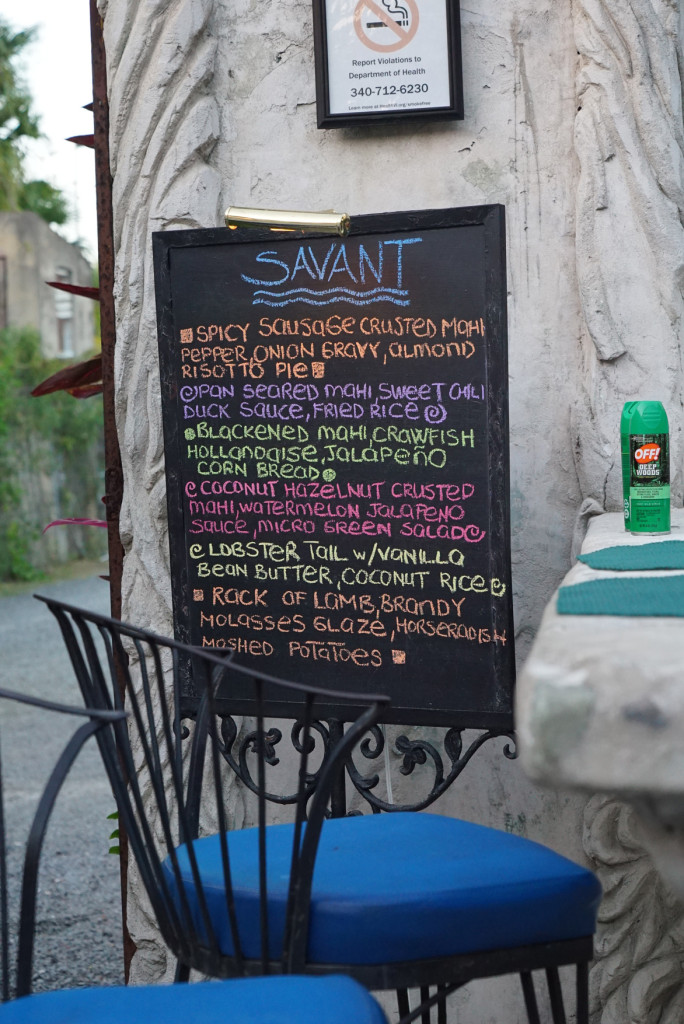 Report Violations to
Department of Health
340-712-6230
SAVANT
SPICY SAUSAGE CRUSTED MAHI
PEPPER, ONION GRAVY, ALMOND
RISOTTO PIE
PAN SEARED MAHI, SWEET CHILI
DUCK SAUCE, FRIED RICE
BLACKENED MAHI, CRAWFISH
HOLLANDAISE, JALAPEÑO
CORN BREAD
COCONUT HAZELNUT CRUSTED
MAHI, WATERMELON JALAPENO
SAUCE, MICRO GREEN SALAD
LOBSTER TAIL W/VANILLA
BEAN BUTTER, COCONUT RICE
RACK OF LAMB, BRANDY
MOLASSES GLAZE, HORSERADISH
MASHED POTATOES
OFF!
DEEP
WOODS